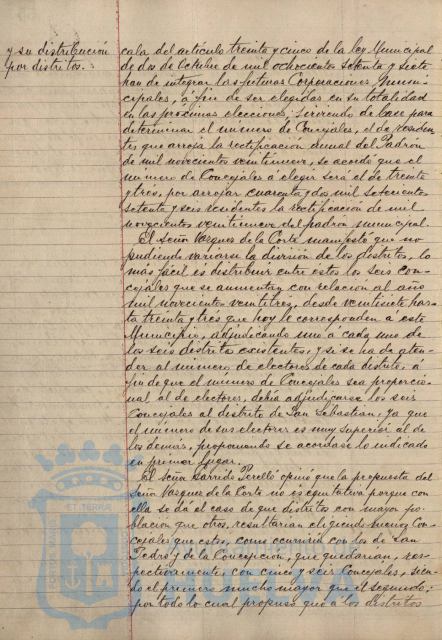 y su distribución
por distritos.
cala del artículo treinta y cinco de la ley Municipal
de dos de Octubre de mil ochocientos setenta y siete
han de integrar las futuras Corporaciones Muni-
cipales, á fin de ser elegidas en su totalidad
en las próximas elecciones; sirviendo de base para
determinar el número de Concejales, el de residen-
tes que arroja la rectificación anual del Padrón
de mil novecientos veintinueve, se acordó que el
número de Concejales á elegir será el de treinta
y tres, por arrojar cuarenta y dos mil setecientos
setenta y seis residentes la rectificación de mil
novecientos veintinueve del padrón municipal.
El Señor Vasques de la Corte manifestó que no
pudiendo variarse la división de los distritos, lo
más facil es distribuir entre estos los seis con-
cejales que se aumentan con relación al año
mil novecientos veintitres, desde veintisiete has-
ta treinta y tres que hoy le corresponden á este
Municipio, adjudicando uno á cada uno de
los seis distritos existentes, y si se ha de aten-
der al número de electores de cada distrito, á
fin de que el número de Concejales sea proporcio-
nal al de electores, debía adjudicarse los seis
Concejales al distrito de San Sebastian, ya que
el número de sus electores es muy superior al de
los demás, proponiendo se acordase lo indicado
en primer lugar.
El Señor Garrido Perelló opinó que la propuesta del
Señor Vasques de la Corte no es equitativa porque con
ella se dá el caso de que distritos con mayor po-
blación que otros, resultarian eligiendo menos Con-
cejales que estos, como ocurriría con los de San
Pedro y de la Concepción, que quedarian, res-
pectivamente, con cinco y seis Concejales, sien-
do el primero mucho mayor que el segundo;
por todo lo cual propuso que á los distritos
ET TERRAE
HUELVA